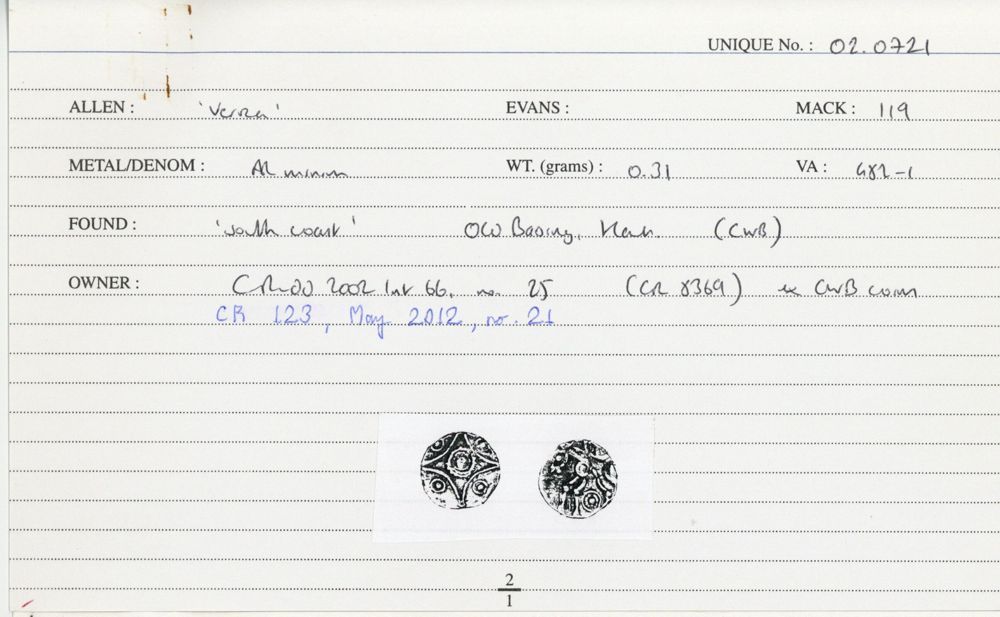 UNIQUE No. : 02.0721
ALLEN : 'Verica' EVANS : MACK : 119
METAL/DENOM : AR minim WT. (grams) : 0.31 VA : 482-1
FOUND : 'south coast' Old Basing, Han. (CWB)
OWNER : 2002 List 66, no. 25 (CR 8369) ex CWB coin
CR 123, May 2012, no. 21
2
1